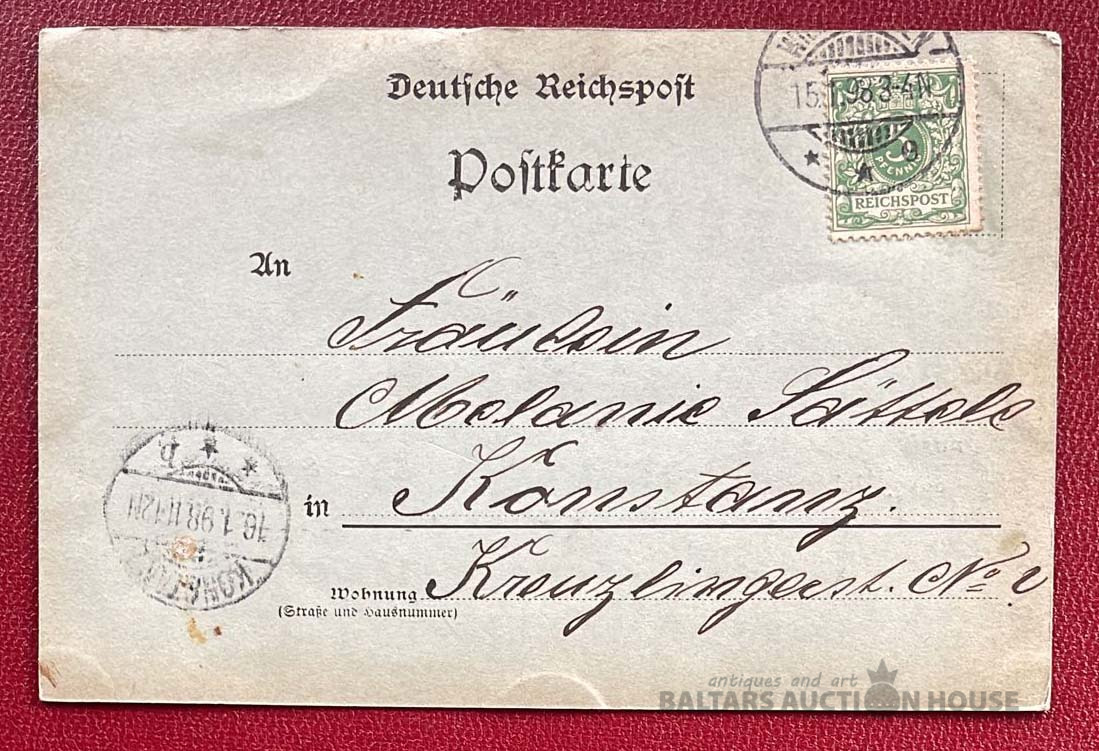 Deutsche Reichspost
Postkarte
15.1.98 3-4N
9
PFENNIG
REICHSPOST
An
Fräulein
Melanie Sättele
in Konstanz.
16.1.98.11-12N
Wohnung Kreuzlingerst. No 2
(Straße und Hausnummer)
antiques and art
BALTARS AUCTION HOUSE